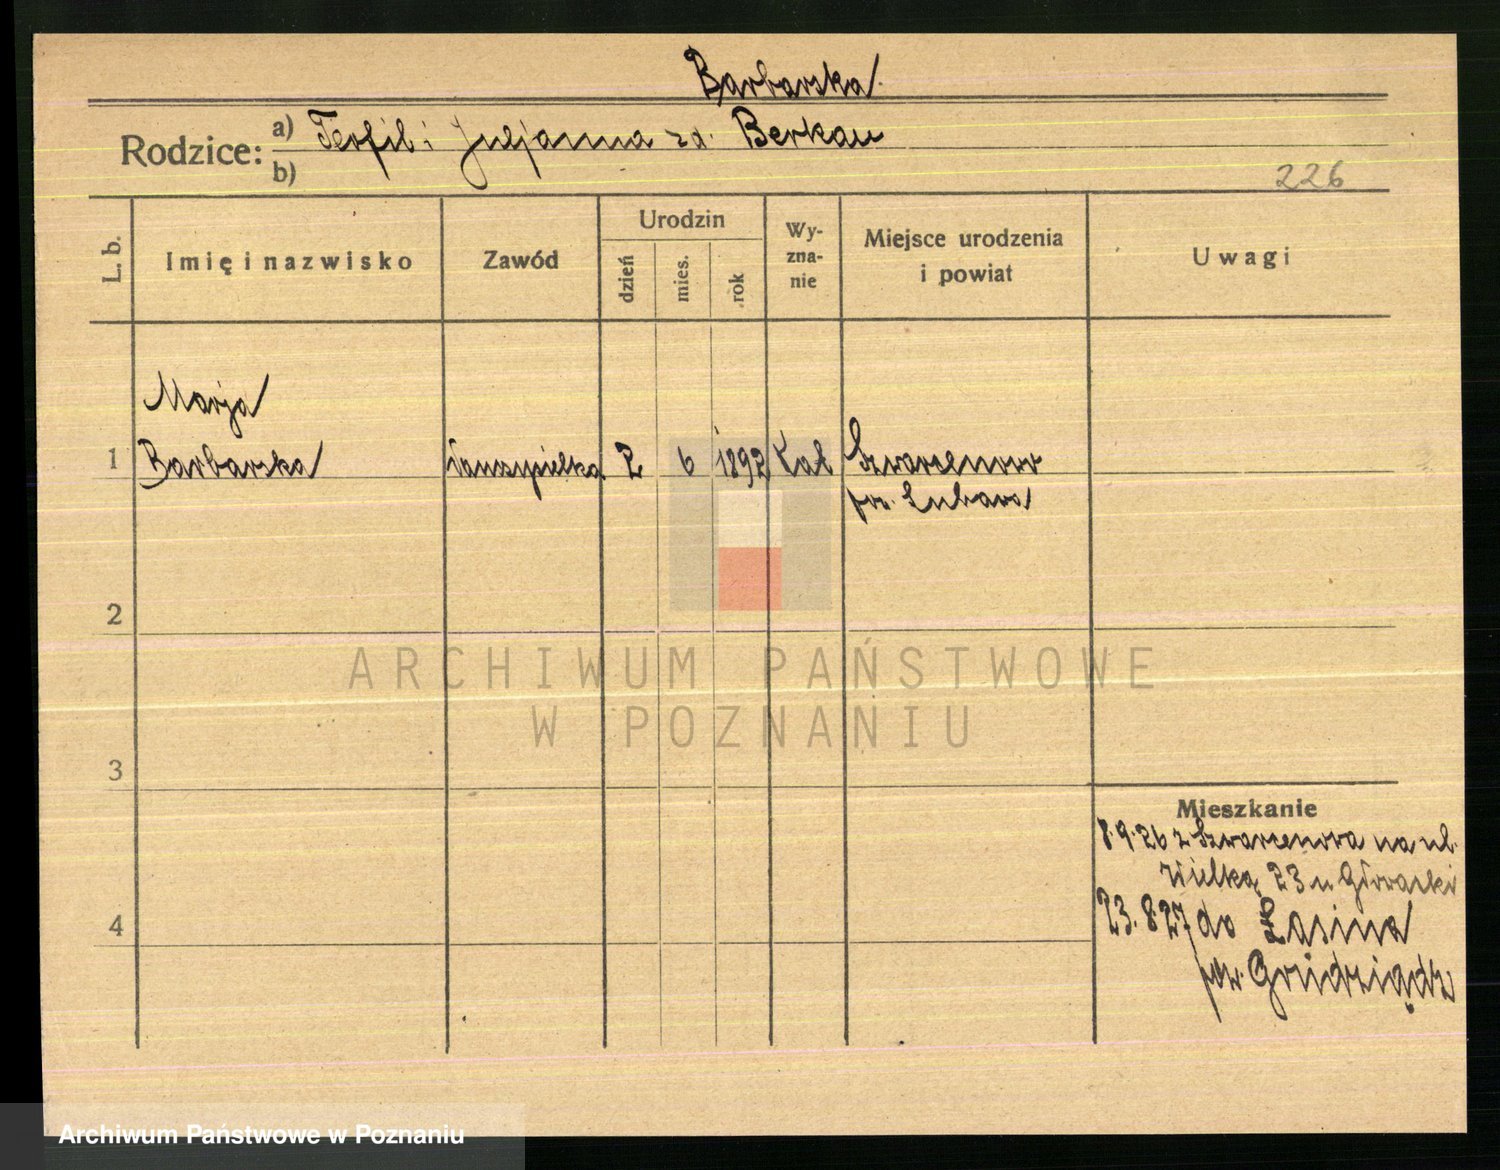 Barbarska
Rodzice: a) Teofil i Juljanna zd. Berkau
b)
226
L. b.
Imię i nazwisko
Zawód
Urodzin
dzień
mies.
rok
Wy-
zna-
nie
Miejsce urodzenia
i powiat
Uwagi
Marja
1 Barbarska 2 6 1892 Kat Szwarcenowo
pow. Lubawa
2
ARCHIWUM PAŃSTWOWE
W POZNANIU
3
Mieszkanie
8.9.26 z Szwarcenowa na ul.
Wielką 23 u
4
23.8.27 do Łasina
pow. Grudziądz
Archiwum Państwowe w Poznaniu